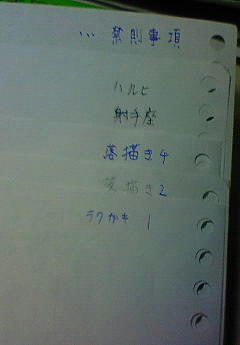 …禁則事項
ハルヒ
射手座
落描き4
落描き2
ラクガキ 1